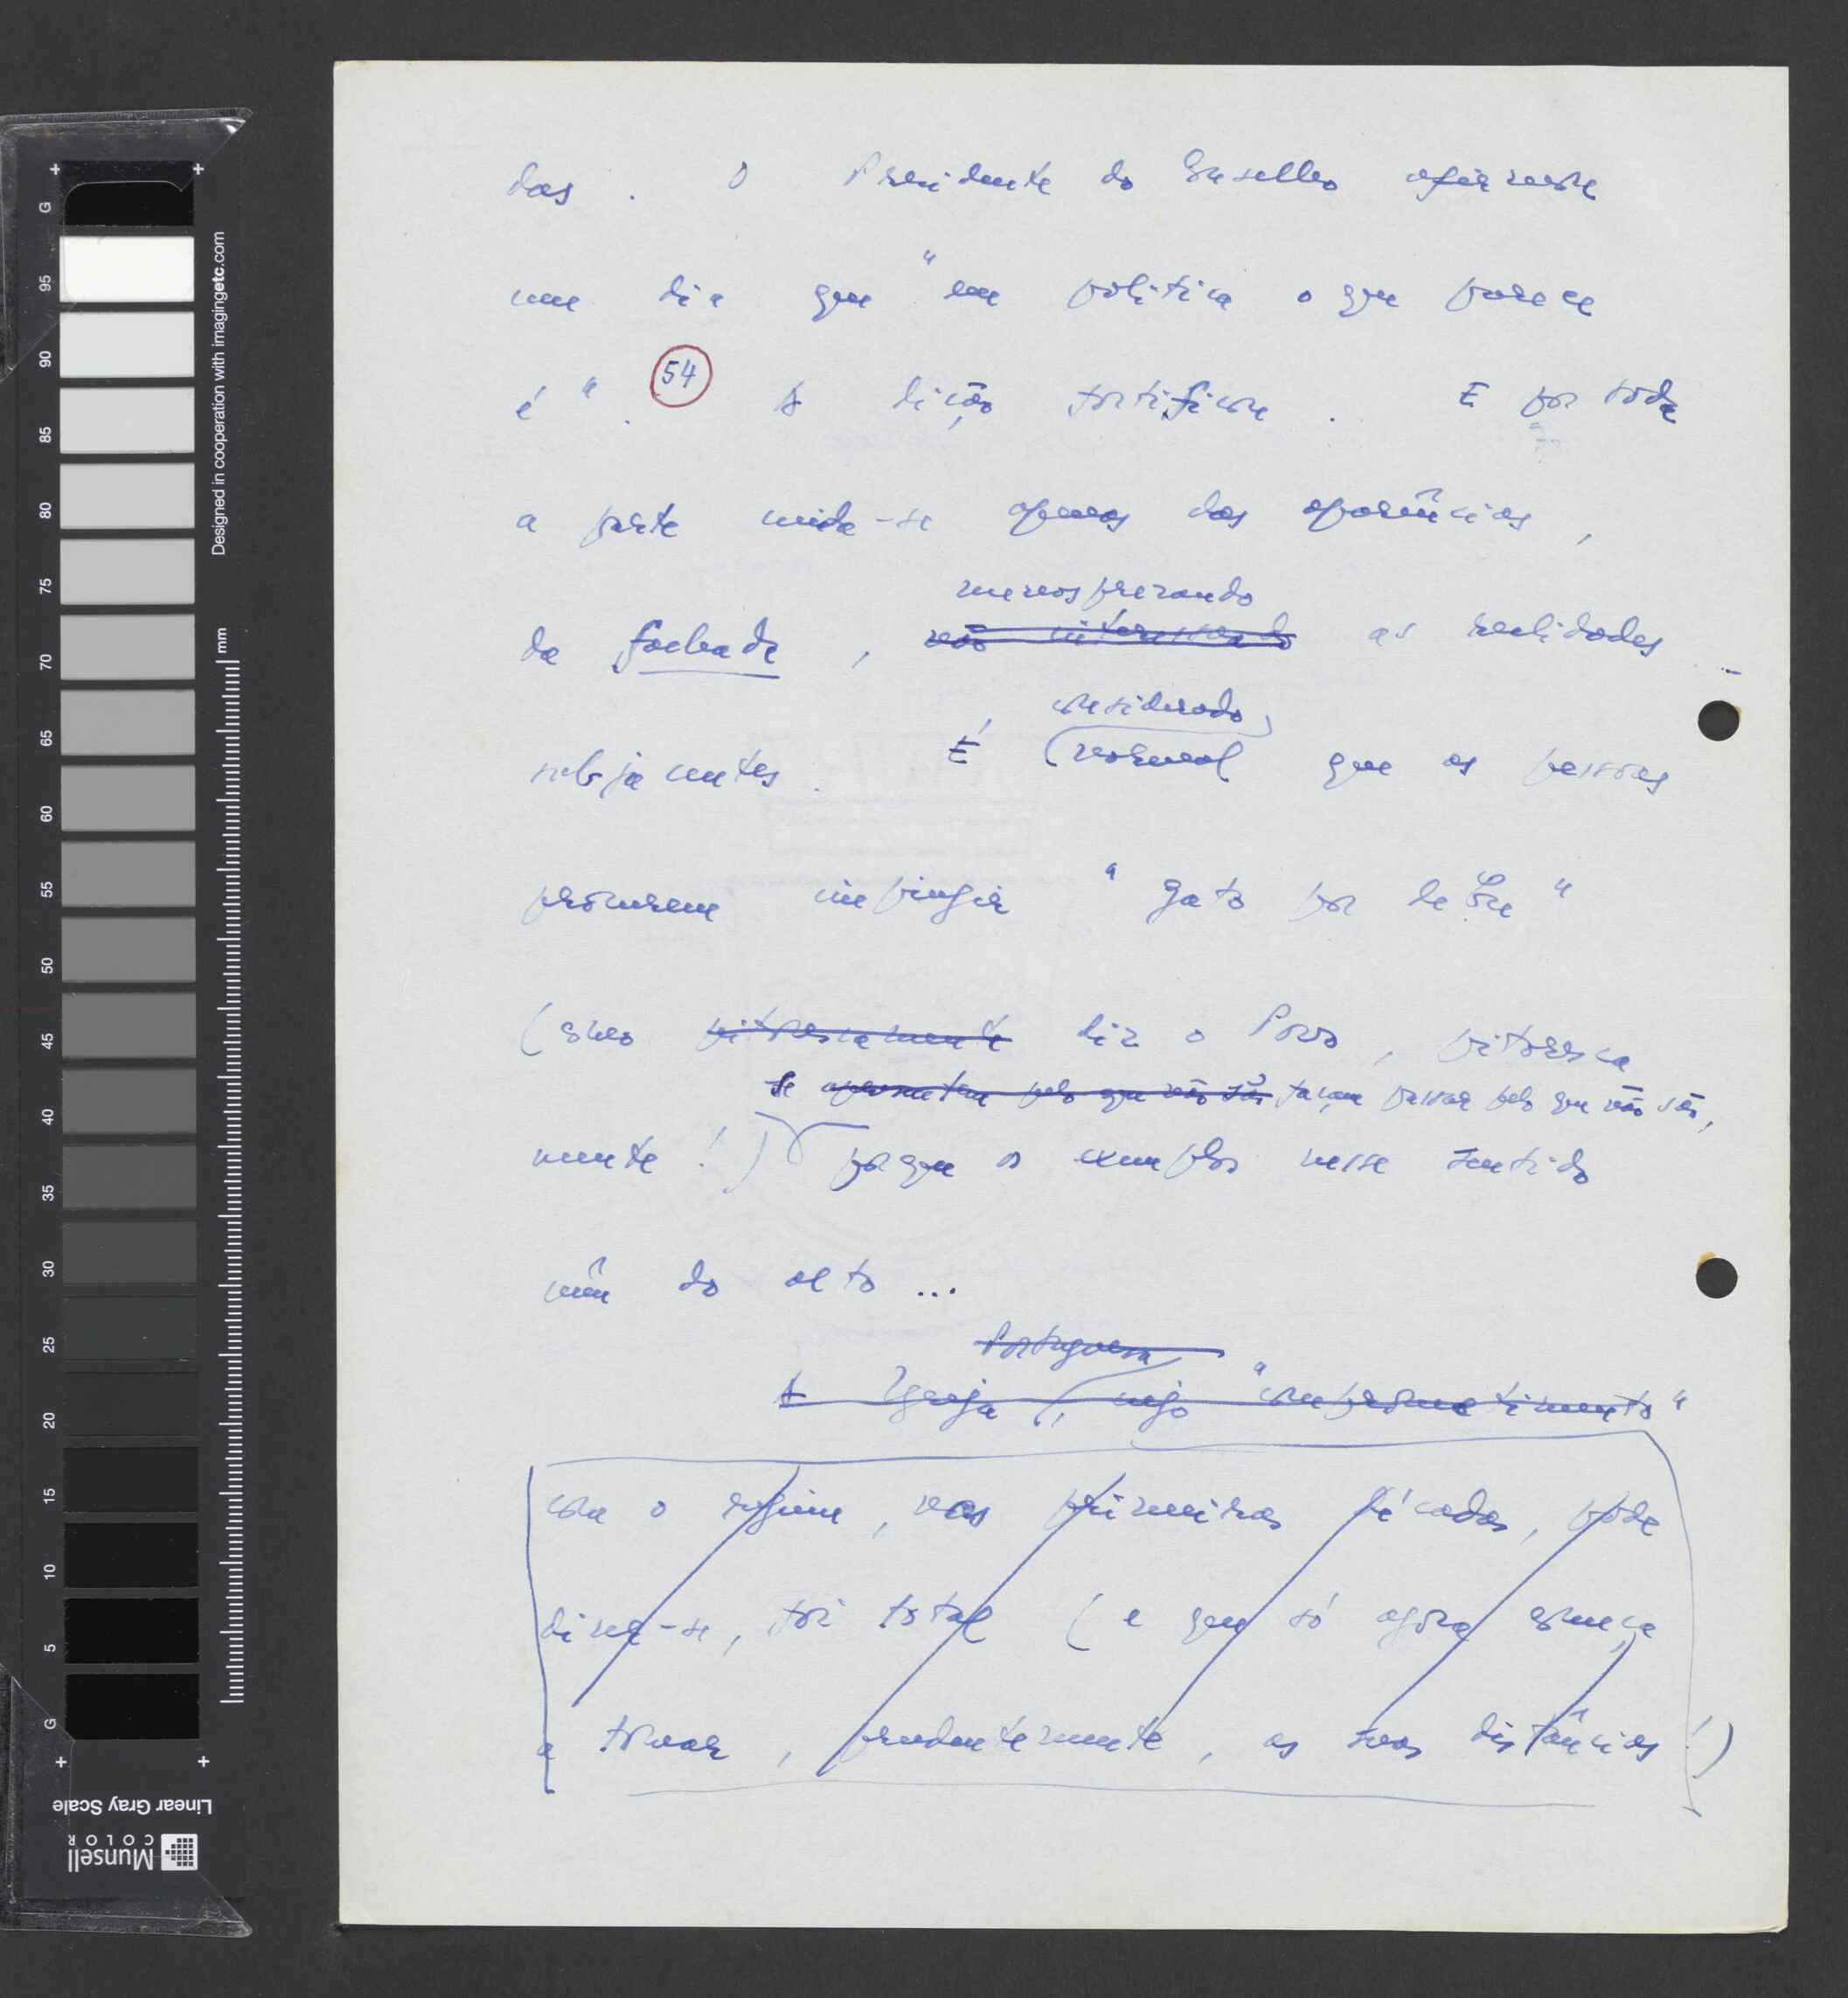 das. O Presidente do Conselho afirmou
um dia que "em política o que parece
é". (54) A lição fortificou. E por toda
a parte cuida-se apenas das aparências,
menosprezando
da fachada, não interessando as realidades
considerado
subjacentes. É normal que as pessoas
procurem impingir "gato por lebre"
(como pitorescamente diz o Povo, pitoresca
se apresentem pelo que não são façam passar pelo que não são,
mente!) porque os exemplos nesse sentido
vêm do alto...
Portuguesa
A Igreja, cujo "comprometimento"
com o regime, nas primeiras décadas, pode
dizer-se, foi total (e que só agora começa
a tomar, prudentemente, as suas distâncias!)
G
95
90
85
80
75
70
65
60
55
50
45
40
35
30
25
20
15
10
5
G
Designed in cooperation with imagingetc.com
mm
Linear Gray Scale
Munsell
COLOR